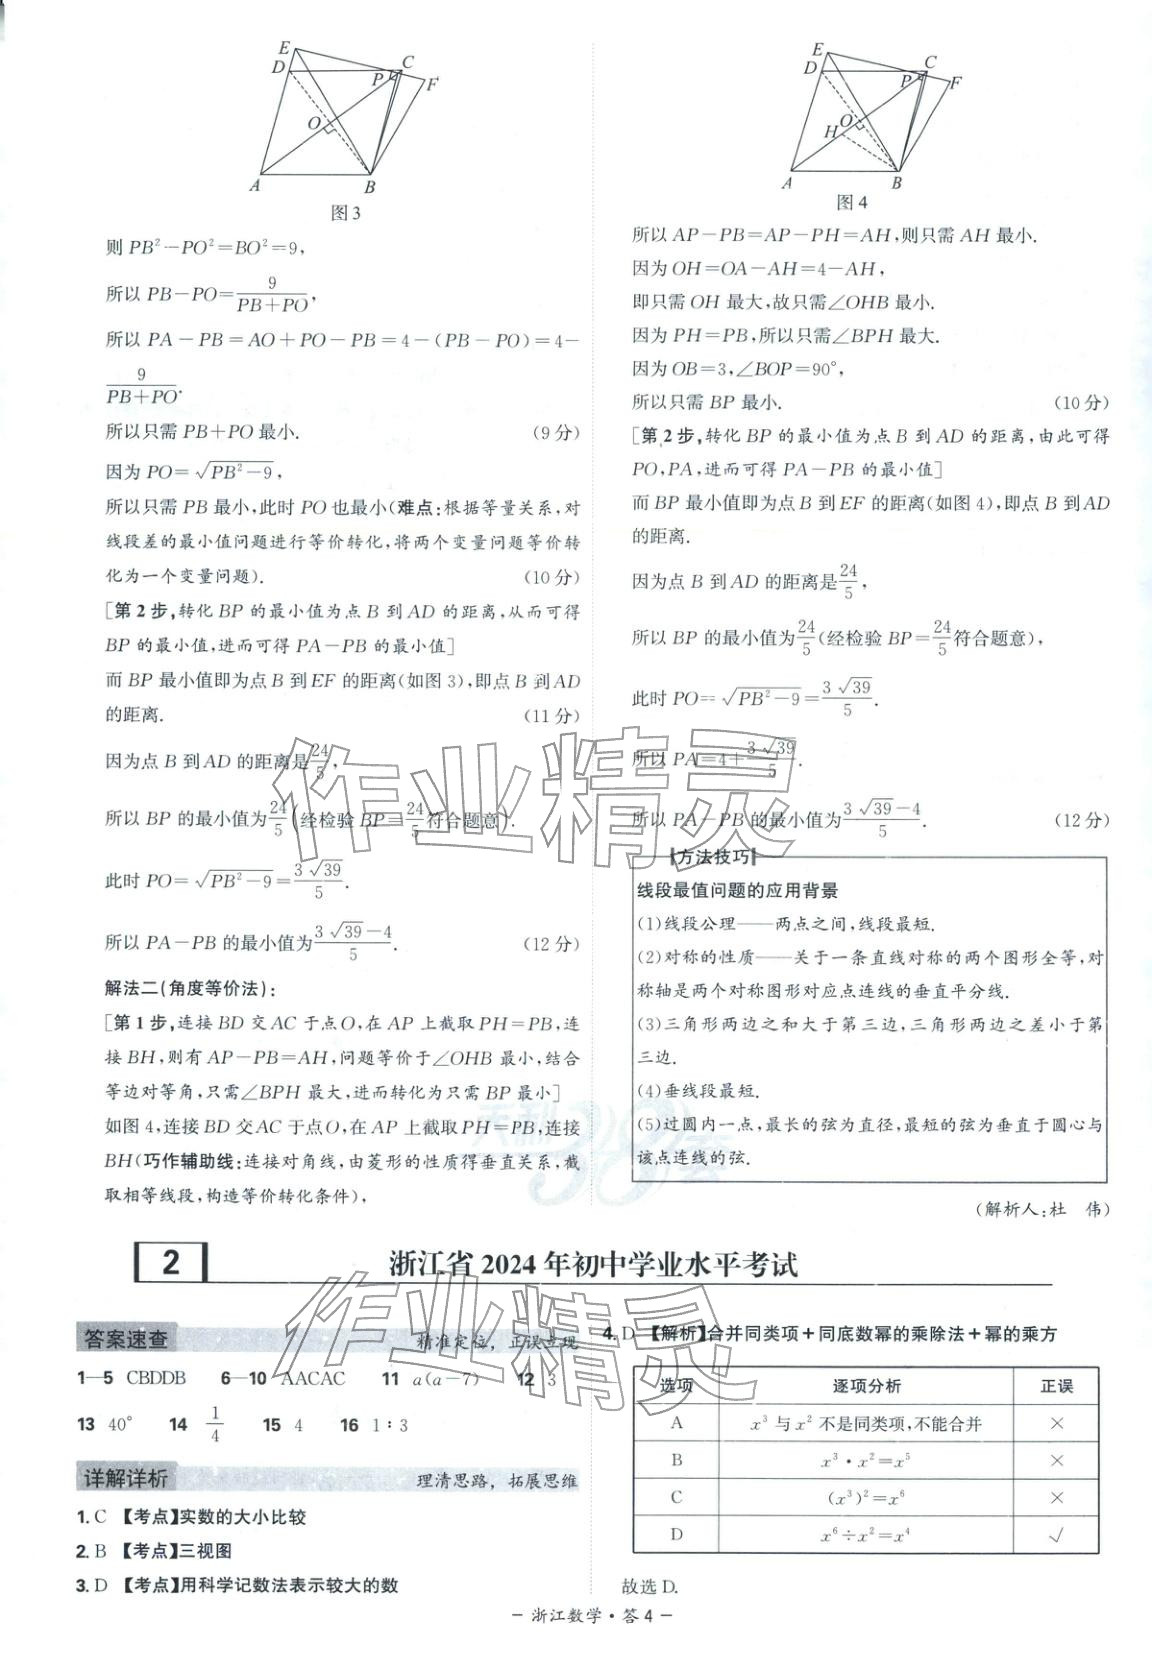 E
D
C
P
F
O
A
B
图 3
则 PB²-PO²=BO²=9,
所以 PB-PO=9/(PB+PO),
所以 PA-PB=AO+PO-PB=4-(PB-PO)=4-
9/(PB+PO).
所以只需 PB+PO 最小. (9 分)
因为 PO=√(PB²-9),
所以只需 PB 最小,此时 PO 也最小(难点:根据等量关系,对
线段差的最小值问题进行等价转化,将两个变量问题等价转
化为一个变量问题). (10 分)
[第 2 步,转化 BP 的最小值为点 B 到 AD 的距离,从而可得
BP 的最小值,进而可得 PA-PB 的最小值]
而 BP 最小值即为点 B 到 EF 的距离(如图 3),即点 B 到 AD
的距离. (11 分)
因为点 B 到 AD 的距离是24/5,
所以 BP 的最小值为24/5(经检验 BP=24/5符合题意).
此时 PO=√(PB²-9)=3√39/5.
所以 PA-PB 的最小值为(3√39-4)/5. (12 分)
解法二(角度等价法):
[第 1 步,连接 BD 交 AC 于点 O,在 AP 上截取 PH=PB,连
接 BH,则有 AP-PB=AH,问题等价于∠OHB 最小,结合
等边对等角,只需∠BPH 最大,进而转化为只需 BP 最小]
如图 4,连接 BD 交 AC 于点 O,在 AP 上截取 PH=PB,连接
BH(巧作辅助线:连接对角线,由菱形的性质得垂直关系,截
取相等线段,构造等价转化条件),
E
D
C
P
F
O
H
A
B
图 4
所以 AP-PB=AP-PH=AH,则只需 AH 最小.
因为 OH=OA-AH=4-AH,
即只需 OH 最大,故只需∠OHB 最小.
因为 PH=PB,所以只需∠BPH 最大.
因为 OB=3,∠BOP=90°,
所以只需 BP 最小. (10 分)
[第 2 步,转化 BP 的最小值为点 B 到 AD 的距离,由此可得
PO,PA,进而可得 PA-PB 的最小值]
而 BP 最小值即为点 B 到 EF 的距离(如图 4),即点 B 到 AD
的距离.
因为点 B 到 AD 的距离是24/5,
所以 BP 的最小值为24/5(经检验 BP=24/5符合题意),
此时 PO=√(PB²-9)=3√39/5.
所以 PA=4+3√39/5.
所以 PA-PB 的最小值为(3√39-4)/5. (12 分)
方法技巧
线段最值问题的应用背景
(1)线段公理——两点之间,线段最短.
(2)对称的性质——关于一条直线对称的两个图形全等,对
称轴是两个对称图形对应点连线的垂直平分线.
(3)三角形两边之和大于第三边,三角形两边之差小于第
三边.
(4)垂线段最短.
(5)过圆内一点,最长的弦为直径,最短的弦为垂直于圆心与
该点连线的弦.
(解析人:杜 伟)
作业精灵
天利38套
2 浙江省 2024 年初中学业水平考试
作业精灵
答案速查 精准定位,正误立现
1—5 CBDDB 6—10 AACAC 11 a(a-7) 12 3
13 40° 14 1/4 15 4 16 1∶3
详解详析 理清思路,拓展思维
1. C 【考点】实数的大小比较
2. B 【考点】三视图
3. D 【考点】用科学记数法表示较大的数
4. D 【解析】合并同类项+同底数幂的乘除法+幂的乘方
选项 逐项分析 正误
A x³ 与 x² 不是同类项,不能合并 ×
B x³·x²=x⁵ ×
C (x³)²=x⁶ ×
D x⁶÷x²=x⁴ √
故选 D.
- 浙江数学·答 4 -